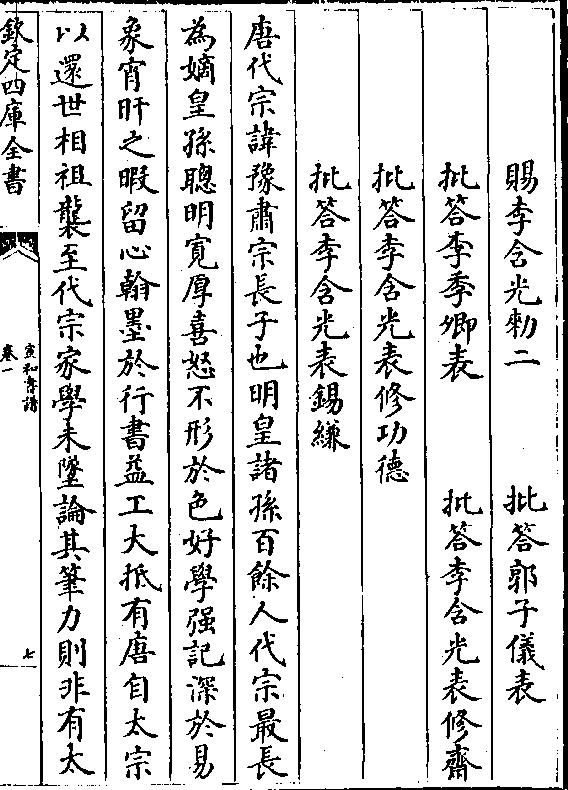 賜李含光勅二　批答郭子儀表
批答李季卿表　批答李含光表修齋
批答李含光表修功德
批答李含光表錫縑
唐代宗諱豫肅宗長子也明皇諸孫百餘人代宗最長
為嫡皇孫聰明寛厚喜怒不形於色好學强記深於易
象宵旰之暇留心翰墨於行書益工大抵有唐自太宗
以還世相祖襲至代宗家學未墜論其筆力則非有太
欽定四庫全書
宣和書譜
卷一
七